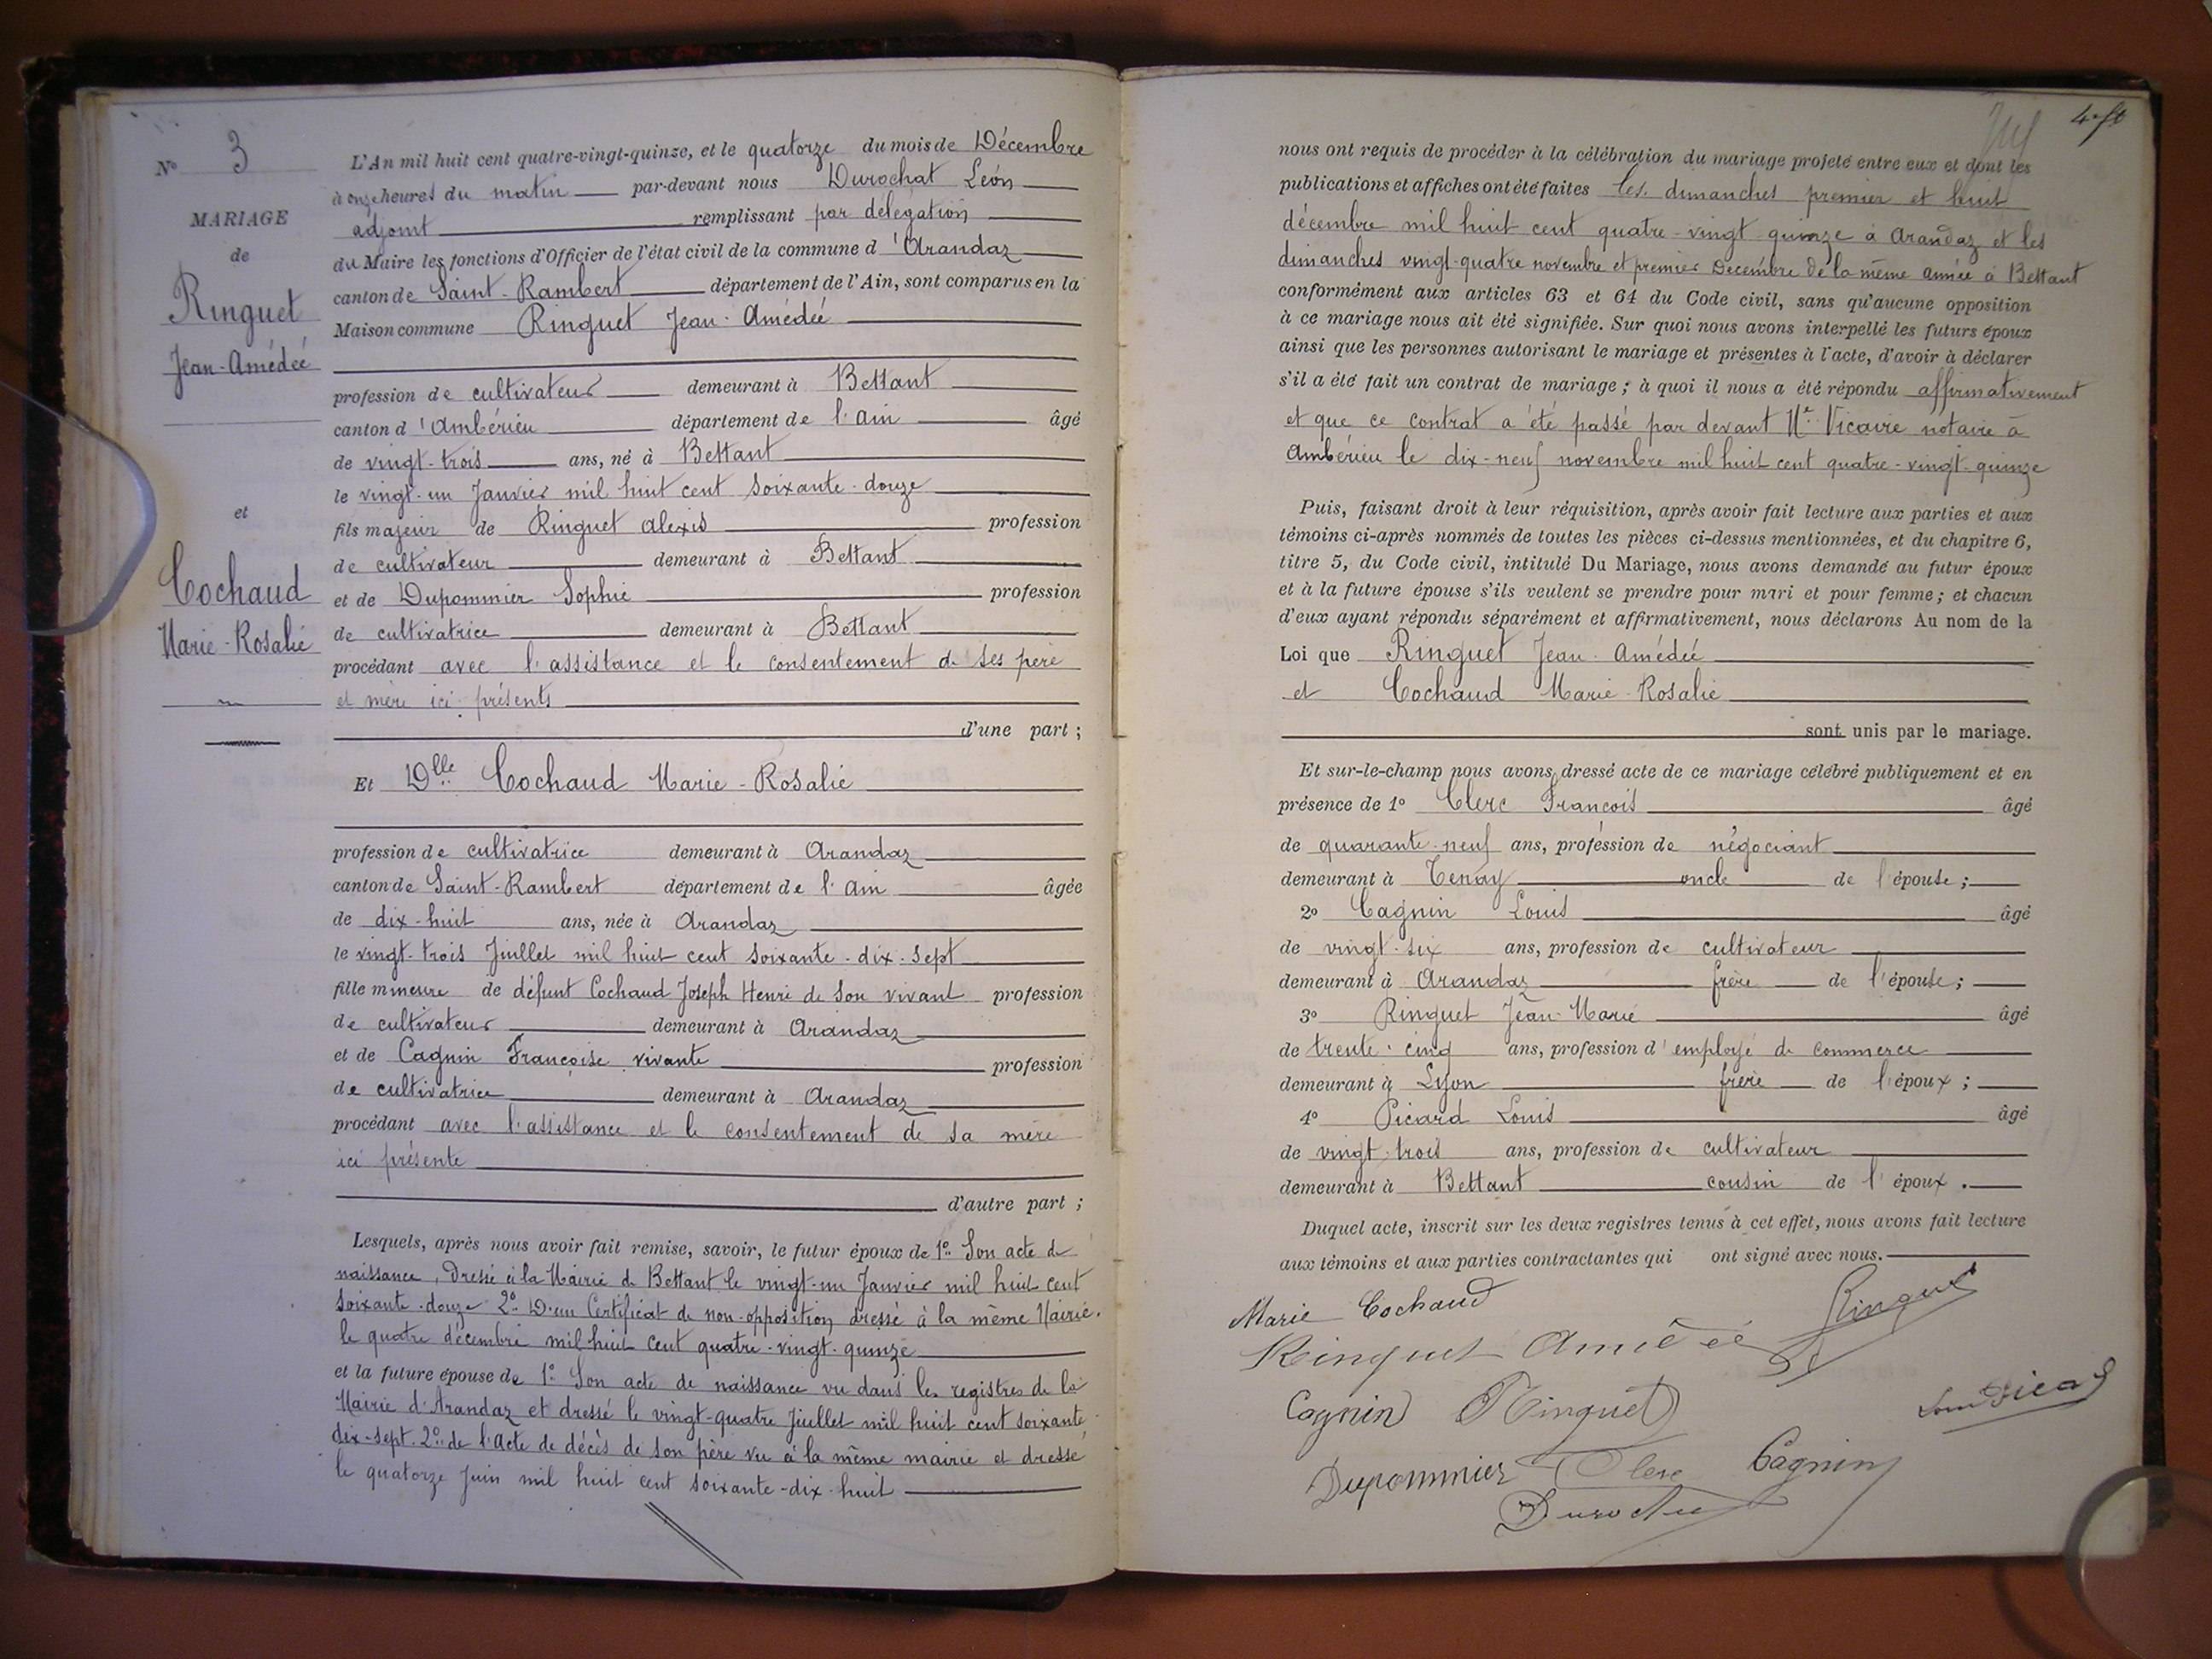 N° 3
MARIAGE
de
Ringuet
Jean-Amédée
et
Cochaud
Marie-Rosalie
L'An mil huit cent quatre-vingt-quinze, et le quatorze du mois de Décembre
à onze heures du matin par-devant nous Durochat Léon
adjoint remplissant par délégation
du Maire les fonctions d'Officier de l'état civil de la commune d'Arandaz
canton de Saint-Rambert département de l'Ain, sont comparus en la
Maison commune Ringuet Jean-Amédée
profession de cultivateur demeurant à Bettant
canton d'Ambérieu département de l'Ain âgé
de vingt-trois ans, né à Bettant
le vingt-un Janvier mil huit cent soixante-douze
fils majeur de Ringuet Alexis profession
de cultivateur demeurant à Bettant
et de Dupommier Sophie profession
de cultivatrice demeurant à Bettant
procédant avec l'assistance et le consentement de ses père
et mère ici présents
d'une part ;
Et Dlle Cochaud Marie-Rosalie
profession de cultivatrice demeurant à Arandaz
canton de Saint-Rambert département de l'Ain âgée
de dix-huit ans, née à Arandaz
le vingt-trois Juillet mil huit cent soixante-dix-sept
fille mineure de défunt Cochaud Joseph Henri de son vivant profession
de cultivateur demeurant à Arandaz
et de Cagnin Françoise vivante profession
de cultivatrice demeurant à Arandaz
procédant avec l'assistance et le consentement de sa mère
ici présente
d'autre part ;
Lesquels, après nous avoir fait remise, savoir, le futur époux de 1° Son acte de
naissance, dressé à la Mairie de Bettant le vingt-un Janvier mil huit cent
soixante-douze 2° D'un Certificat de non-opposition dressé à la même Mairie.
le quatre décembre mil huit cent quatre-vingt-quinze
et la future épouse de 1° Son acte de naissance vu dans les registres de la
Mairie d'Arandaz et dressé le vingt-quatre Juillet mil huit cent soixante
dix-sept. 2° de l'Acte de décès de son père vu à la même mairie et dressé
le quatorze Juin mil huit cent soixante-dix-huit
nous ont requis de procéder à la célébration du mariage projeté entre eux et dont les
publications et affiches ont été faites les dimanches premier et huit
décembre mil huit cent quatre-vingt-quinze à Arandaz et les
dimanches vingt-quatre novembre et premier Décembre de la même année à Bettant
conformément aux articles 63 et 64 du Code civil, sans qu'aucune opposition
à ce mariage nous ait été signifiée. Sur quoi nous avons interpellé les futurs époux
ainsi que les personnes autorisant le mariage et présentes à l'acte, d'avoir à déclarer
s'il a été fait un contrat de mariage ; à quoi il nous a été répondu affirmativement
et que ce contrat a été passé par devant Me Vicaire notaire à
Ambérieu le dix-neuf novembre mil huit cent quatre-vingt-quinze
Puis, faisant droit à leur réquisition, après avoir fait lecture aux parties et aux
témoins ci-après nommés de toutes les pièces ci-dessus mentionnées, et du chapitre 6,
titre 5, du Code civil, intitulé Du Mariage, nous avons demandé au futur époux
et à la future épouse s'ils veulent se prendre pour mari et pour femme ; et chacun
d'eux ayant répondu séparément et affirmativement, nous déclarons Au nom de la
Loi que Ringuet Jean-Amédée
et Cochaud Marie-Rosalie
sont unis par le mariage.
Et sur-le-champ nous avons dressé acte de ce mariage célébré publiquement et en
présence de 1° Clerc François âgé
de quarante-neuf ans, profession de négociant
demeurant à Tenay oncle de l'épouse ;
2° Cagnin Louis âgé
de vingt-six ans, profession de cultivateur
demeurant à Arandaz frère de l'épouse ;
3° Ringuet Jean-Marie âgé
de trente-cinq ans, profession d'employé de commerce
demeurant à Lyon frère de l'époux ;
4° Picard Louis âgé
de vingt-trois ans, profession de cultivateur
demeurant à Bettant cousin de l'époux.
Duquel acte, inscrit sur les deux registres tenus à cet effet, nous avons fait lecture
aux témoins et aux parties contractantes qui ont signé avec nous.
Marie Cochaud Ringuet
Ringuet Amédée
Cagnin Ringuet Louis Picard
Dupommier Clerc Cagnin
Durochat